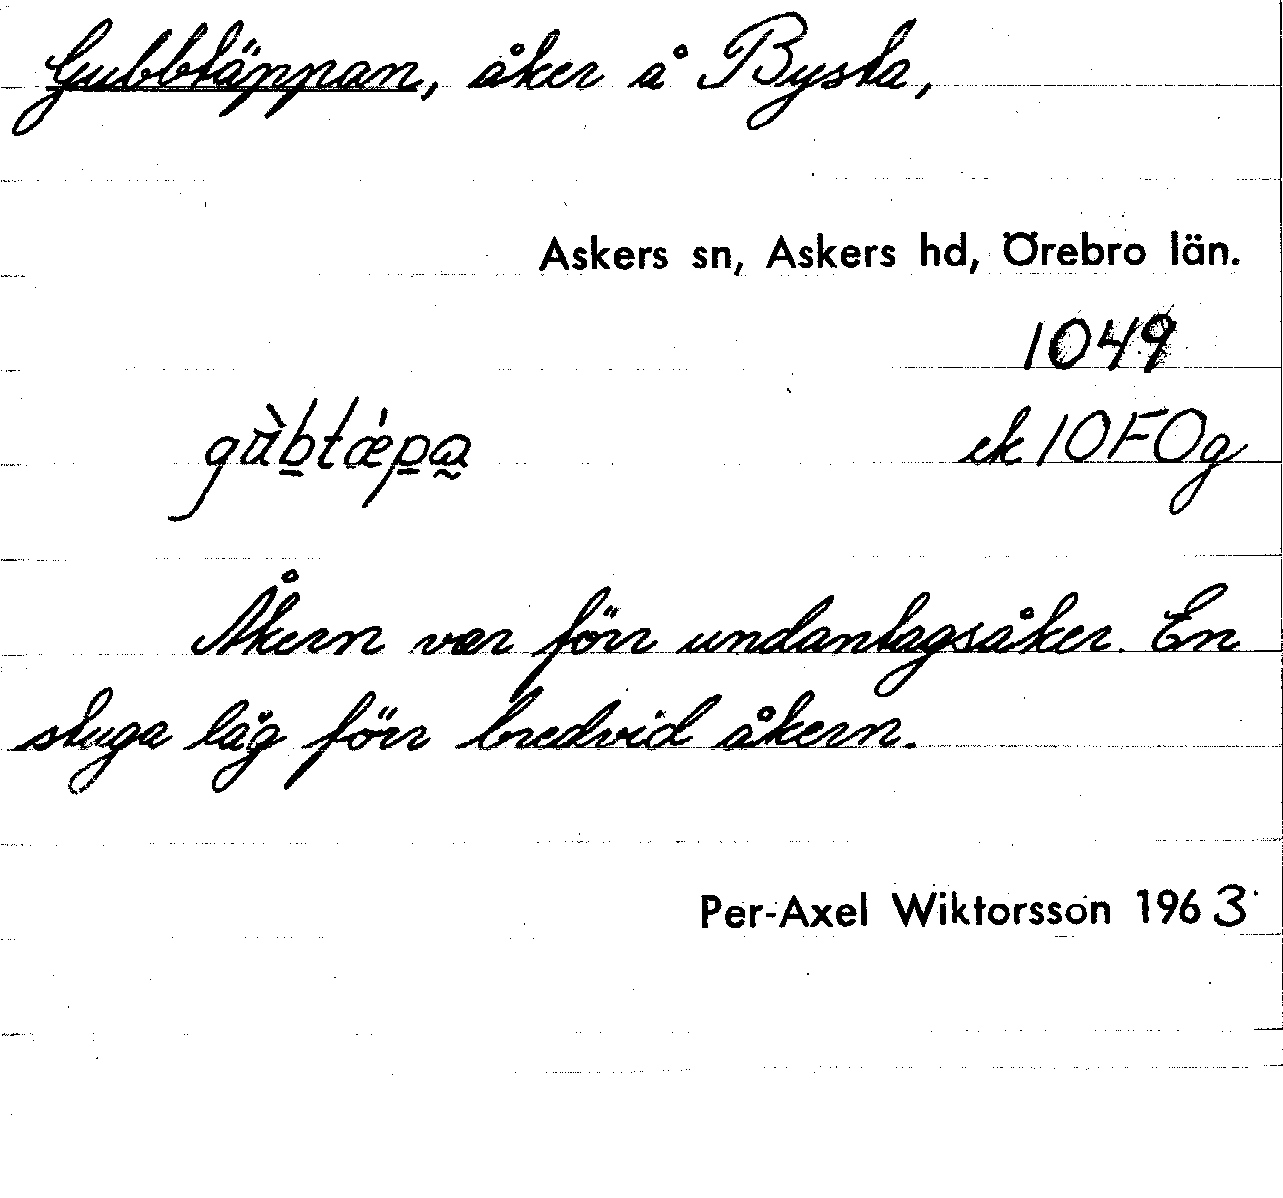 Gubbtäppan, åker å Bysta,
Askers sn, Askers hd, Örebro län.
1049
gu̇̀b̲tǽp̲a̰ ek 10F0g
Åkern var förr undantagsåker. En
stuga låg förr bredvid åkern.
Per-Axel Wiktorsson 1963